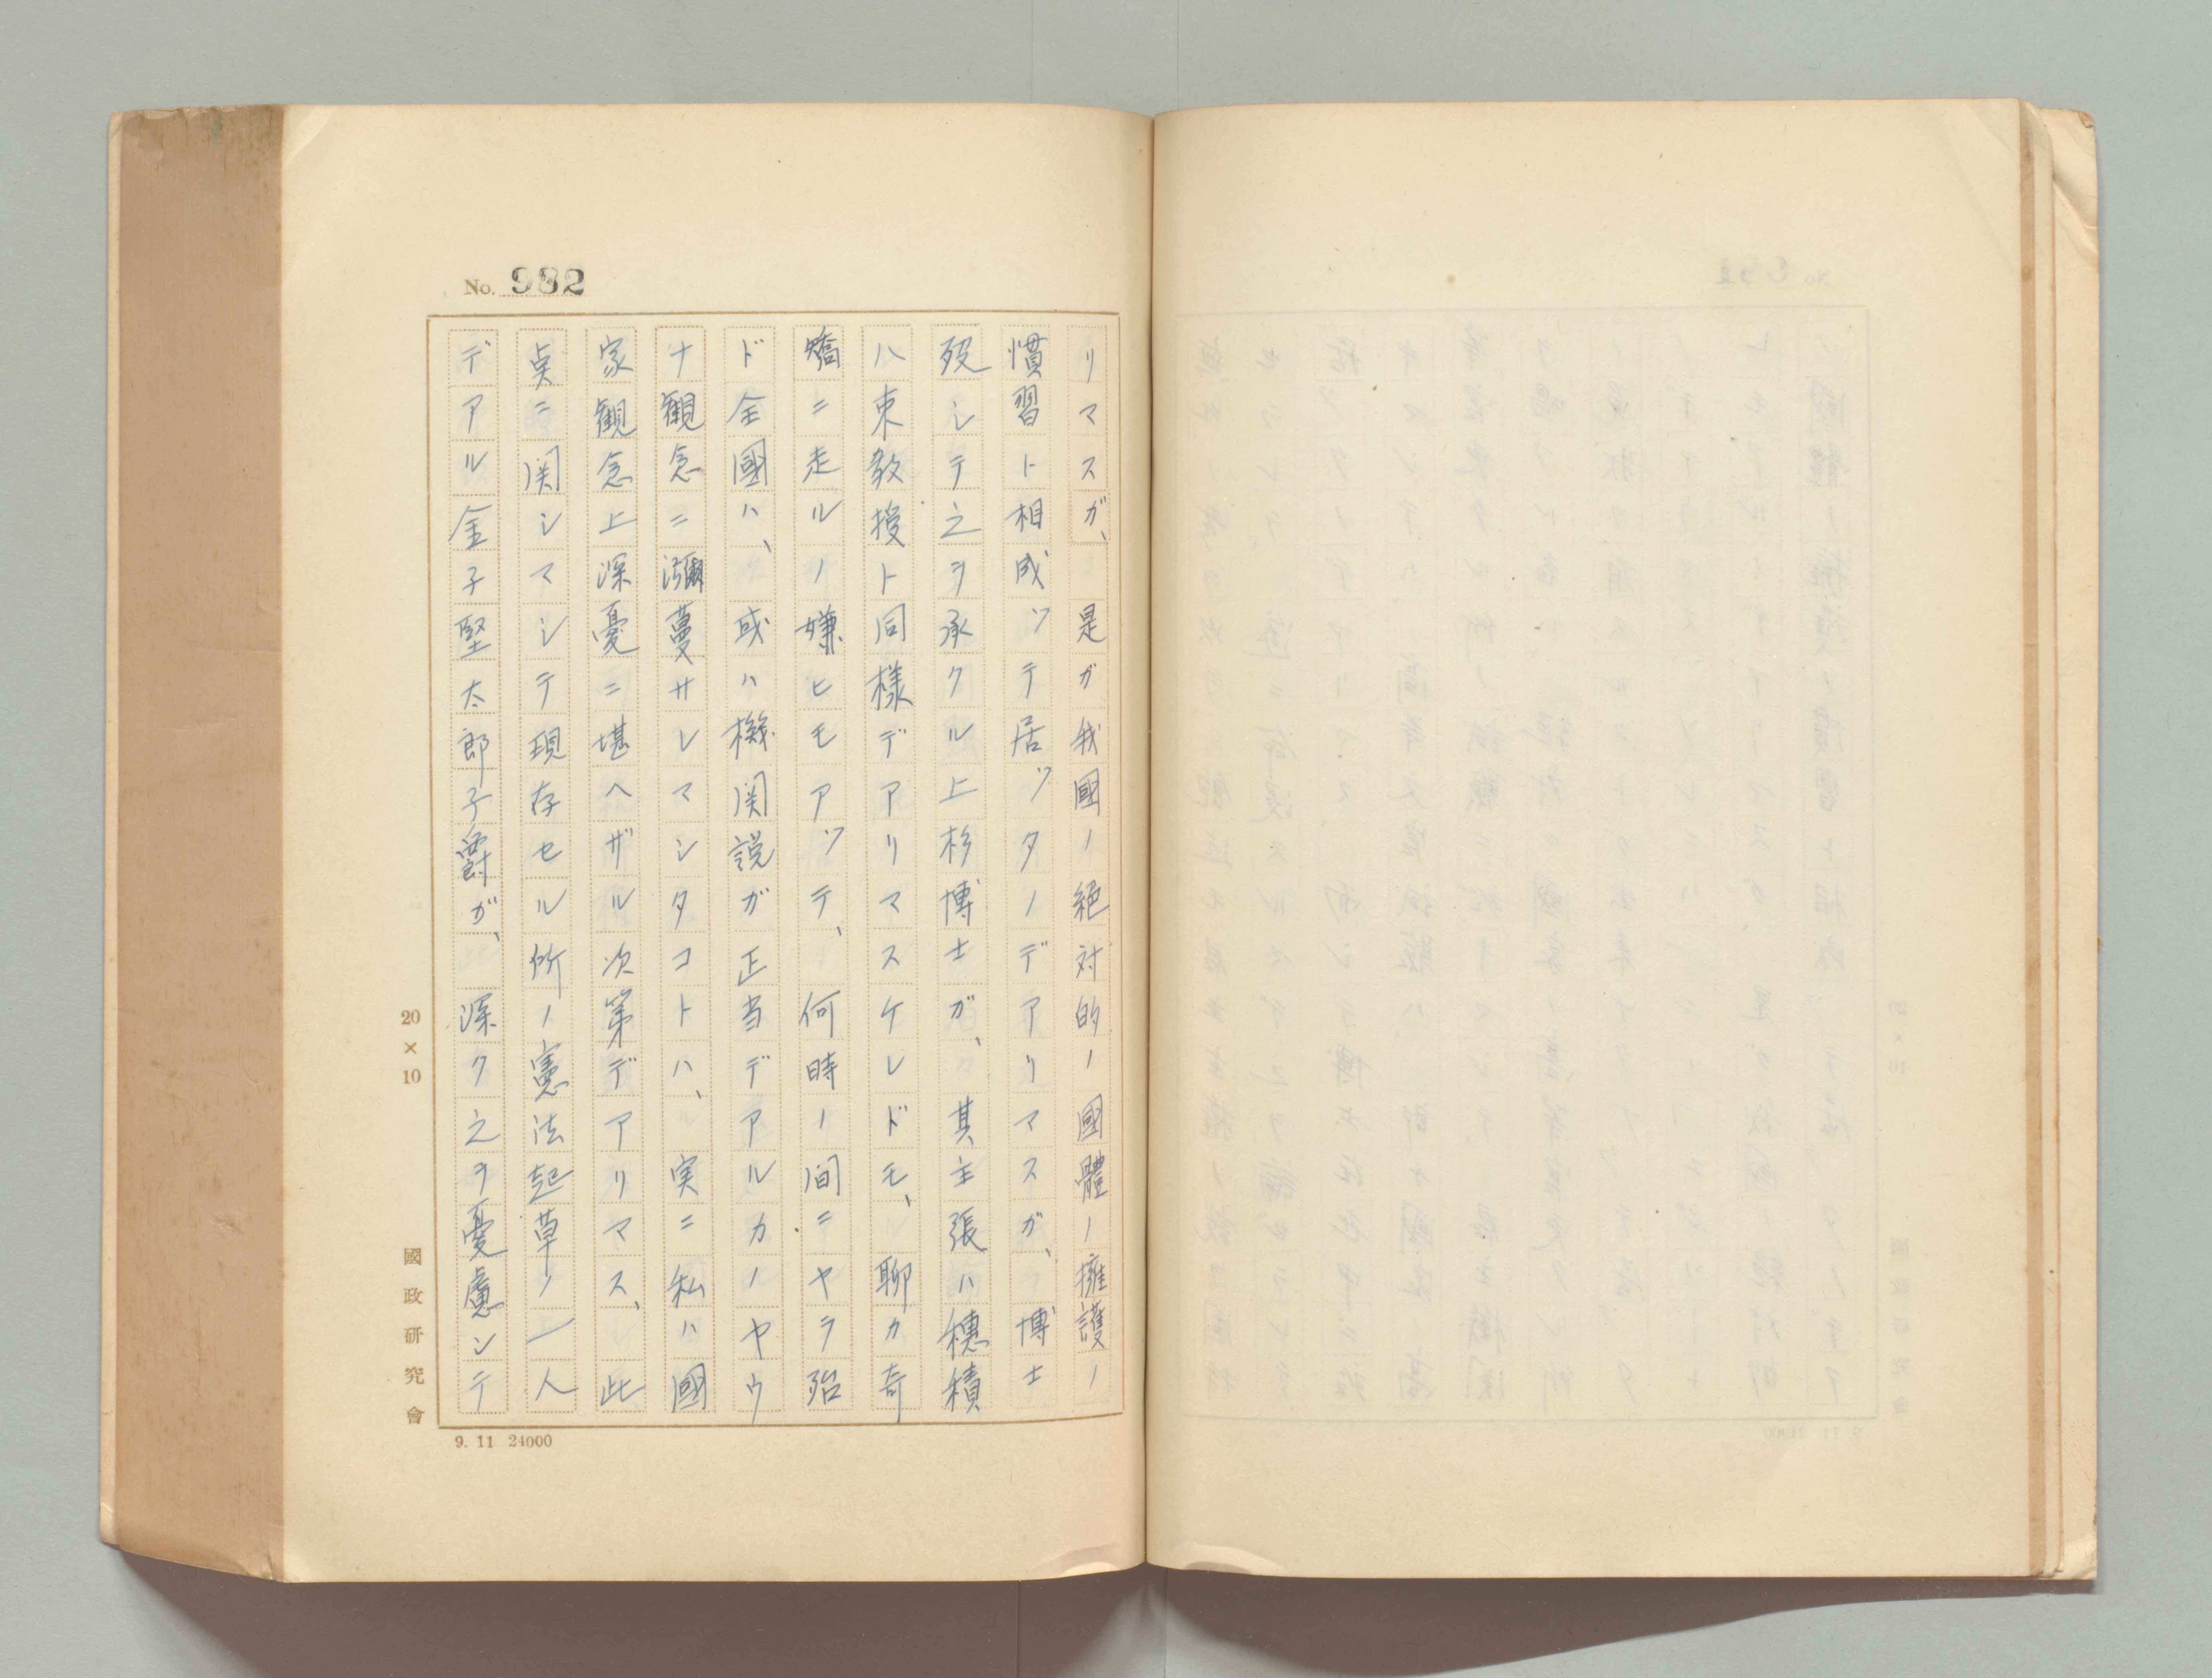 No. 982
リマスガ、是ガ我國ノ絶対的ノ國體ノ擁護ノ
慣習ト相成ツテ居ツタノデアリマスガ、博士
歿シテ之ヲ承クル上杉博士ガ、其主張ハ穂積
ハ束教授ト同様デアリマスケレドモ、聊カ奇
矯ニ走ルノ嫌ヒモアツテ、何時ノ間ニヤラ殆
ド全國ハ、或ハ機関説ガ正当デアルカノヤウ
ナ観念ニ瀰蔓サレマシタコトハ、実ニ私ハ國
家観念上深憂ニ堪ヘザル次第デアリマス、此
点ニ関シマシテ現存セル所ノ憲法起草ノ一人
デアル金子堅太郎子爵ガ、深ク之ヲ憂慮シテ
20×10
國政研究會
9. 11 24000